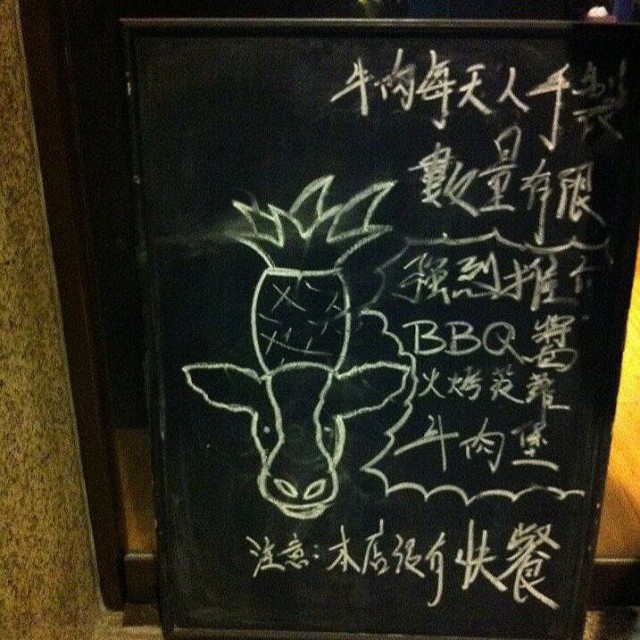 牛肉每天人手製
數量有限
強烈推介
BBQ醬
火烤菠蘿
牛肉堡
注意:本店快餐